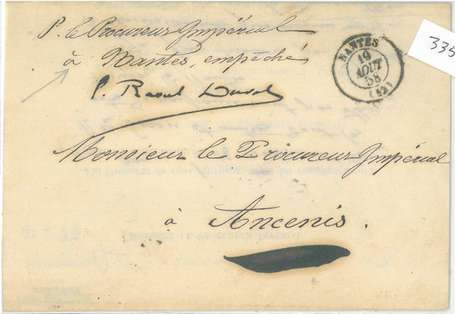 P. le Procureur Impérial
à Nantes, empêché
P. Raoul Duval
NANTES
19
AOUT
58
(42)
335
Monsieur le Procureur Impérial
à Ancenis.